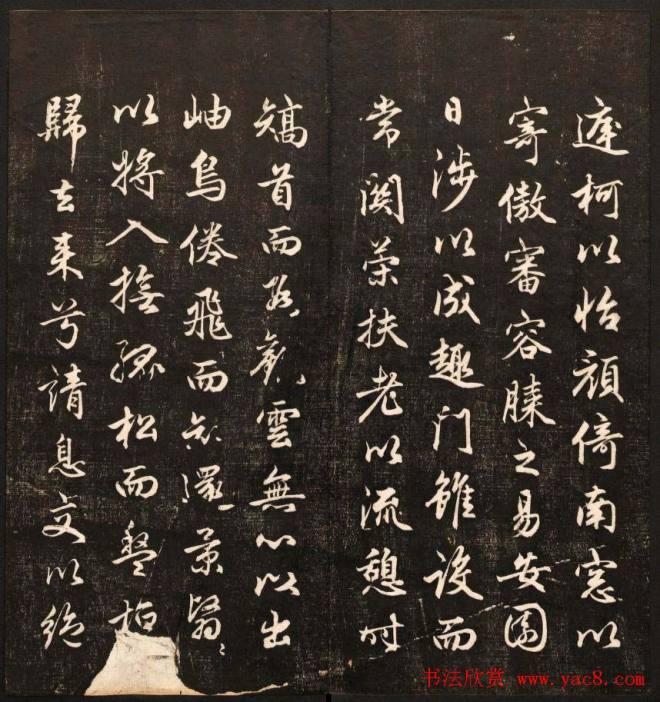 庭柯以怡顔倚南窓以
寄傲審容膝之易安園
日涉以成趣門雖設而
常関策扶老以流憩時
矯首而遐觀雲無心以出
岫鳥倦飛而知還景翳〻
以將入撫孤松而盤桓
歸去来兮請息交以絶
书法欣赏 www.yac8.com